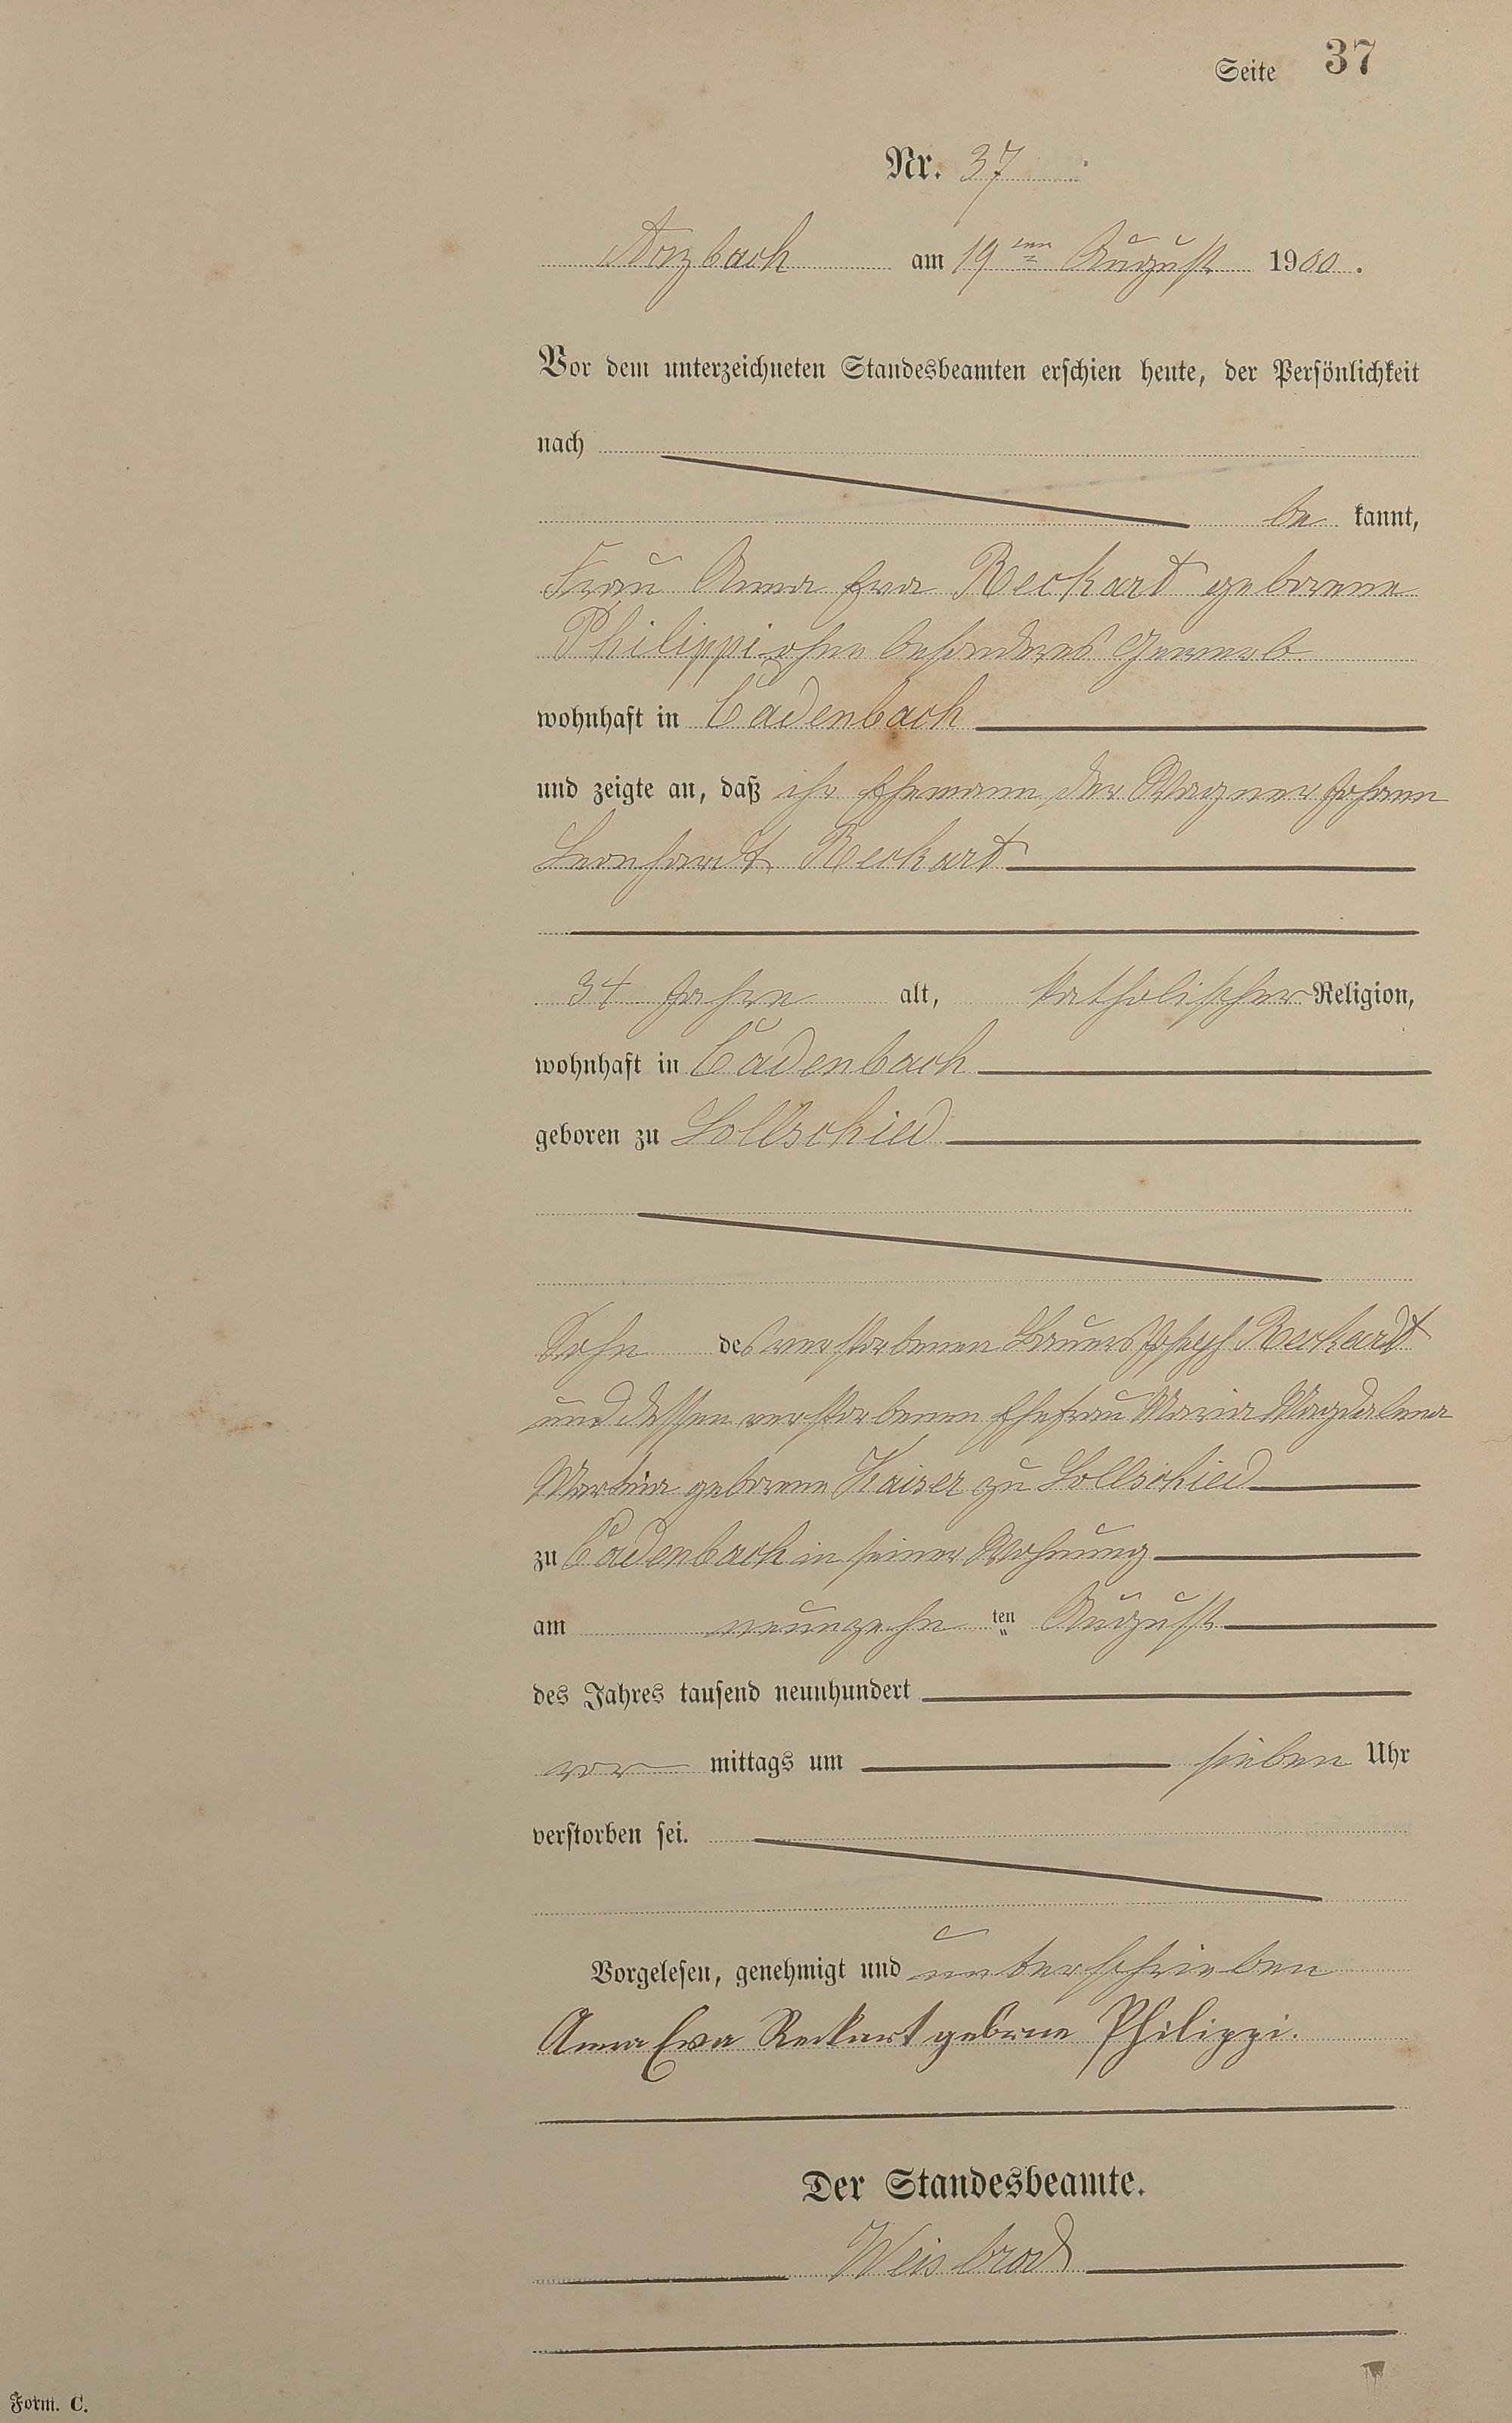 Seite 37
Nr. 37
Arzbach am 19ten August 1900.
Vor dem unterzeichneten Standesbeamten erschien heute, der Persönlichkeit
nach
be kannt,
Frau Anna Eva Reckart geborene
Philippi ohne besonderes Gewerb
wohnhaft in Cadenbach
und zeigte an, daß ihr Ehemann der Wagner Johann
Leonhardt Reckart
34 Jahre alt, katholischer Religion,
wohnhaft in Cadenbach
geboren zu Lollschied
Sohn des verstorbenen Bauers Joseph Reckardt
und dessen verstorbenen Ehefrau Maria Magdalena
geborene Kaiser zu Lollschied
zu Cadenbach in seiner Wohnung
am neunzehn ten August
des Jahres tausend neunhundert
vor mittags um sieben Uhr
verstorben sei.
Vorgelesen, genehmigt und unterschrieben
Anna Eva Reckart geborne Philippi.
Der Standesbeamte.
Weisbrod
Form. C.